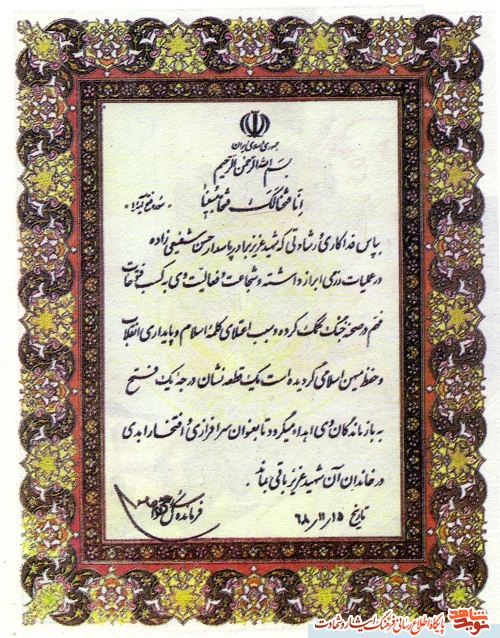 جمهوری اسلامی ایران
بسم الله الرحمن الرحیم
انا فتحنا لک فتحا مبینا
سوره فتح آیه ۱
بپاس فداکاری و رشادتی که شهید عزیز برادر پاسدار حسن شفیعی زاده
در عملیات رزمی ابراز داشته و شجاعت و فعالیت وی به کسب فتوحات
مهم در صحنه جنگ کمک کرده و سبب اعتلای کلمه اسلام و پایداری انقلاب
و حفظ میهن اسلامی گردیده است یک قطعه نشان درجه یک فتح
به بازماندگان وی اهداء میگردد تا بعنوان سرافرازی و افتخار ابدی
در خاندان آن شهید عزیز باقی بماند .
تاریخ ۶۸٫۱۱٫۱۵
فرمانده کل قوا
نوید شاهد
پایگاه اطلاع رسانی فرهنگ ایثار و شهادت